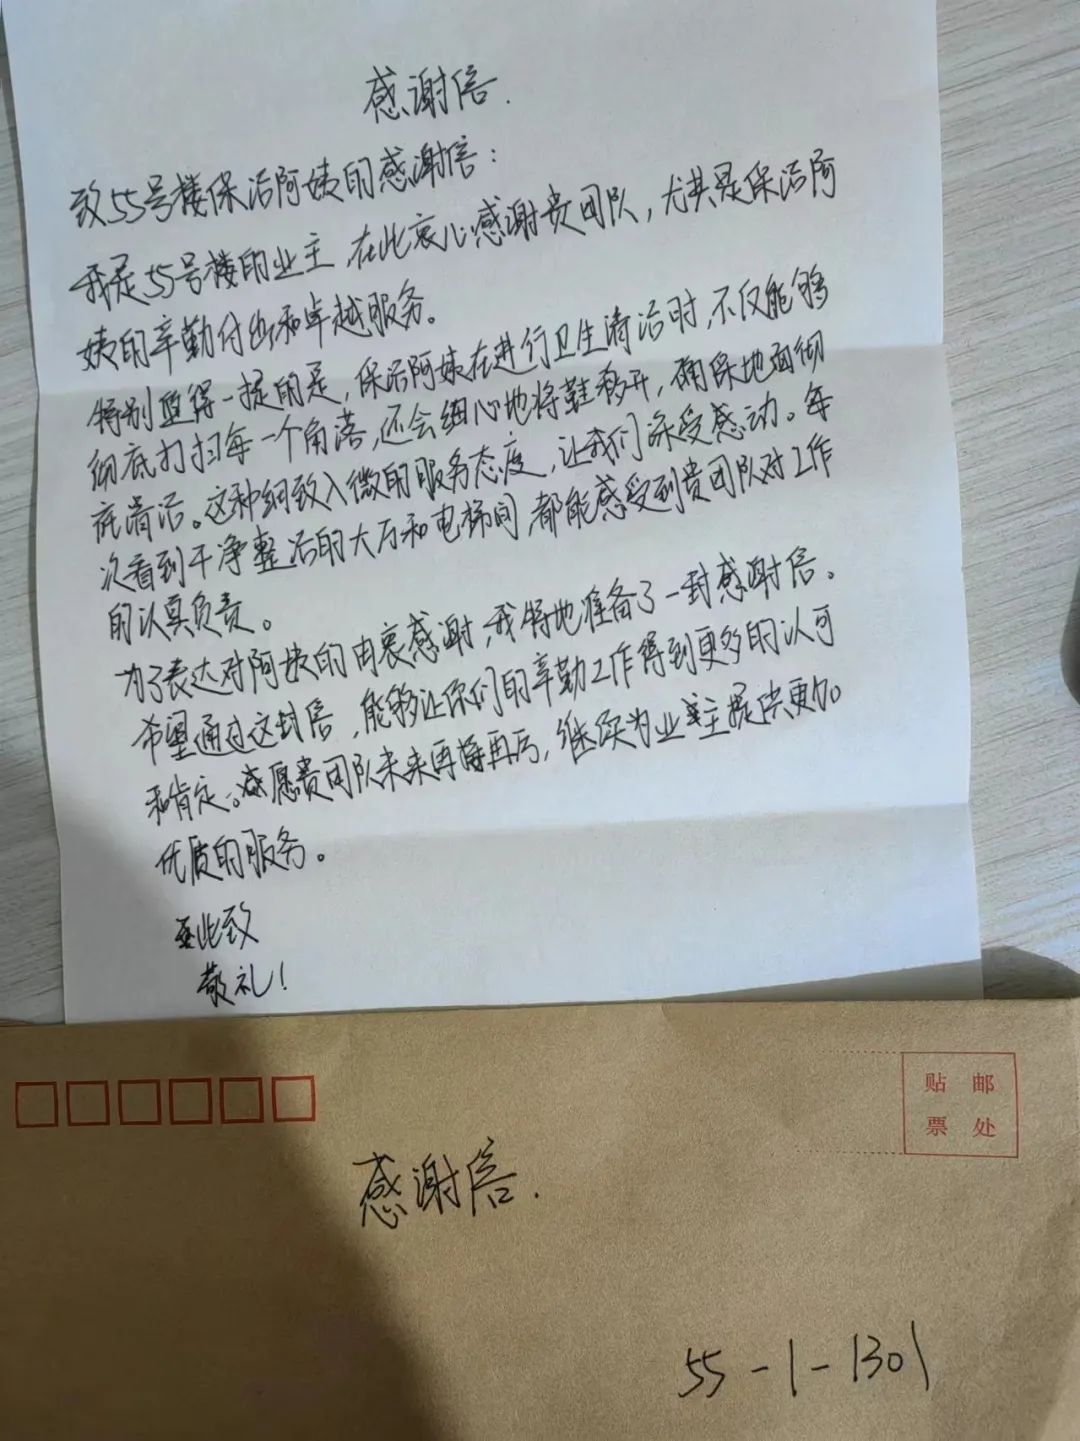 感谢信.
致55号楼保洁阿姨的感谢信：
我是55号楼的业主，在此衷心感谢贵团队，尤其是保洁阿
姨的辛勤付出和卓越服务。
特别值得一提的是，保洁阿姨在进行卫生清洁时，不仅能够
彻底打扫每一个角落，还会细心地将鞋移开，确保地面彻
底清洁。这种细致入微的服务态度，让我们深受感动。每
次看到干净整洁的大厅和电梯间，都能感受到贵团队对工作
的认真负责。
为了表达对阿姨的由衷感谢，我特地准备了一封感谢信。
希望通过这封信，能够让你们的辛勤工作得到更多的认可
和肯定。愿贵团队未来再接再厉，继续为业主提供更加
优质的服务。
此致
敬礼！
贴 邮
票 处
感谢信.
55-1-1301